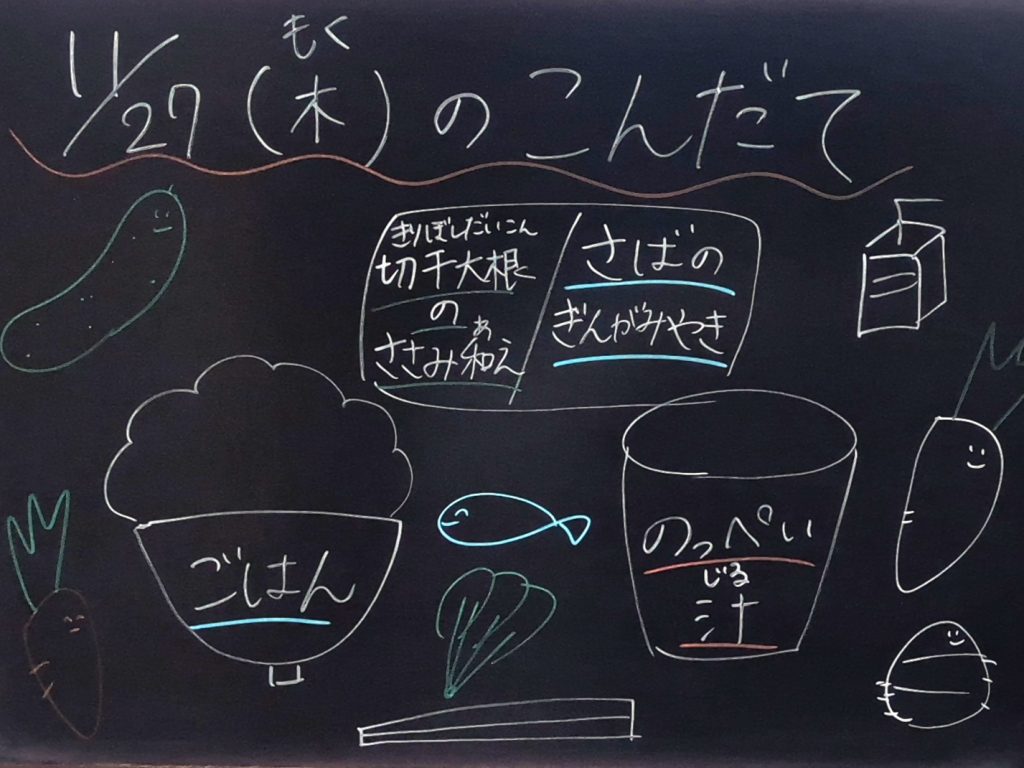 もく
11/27(木)のこんだて
きりぼしだいこん
切干大根
の
あ
ささみ和え
さばの
ぎんがみやき
ごはん
のっぺい
じる
汁